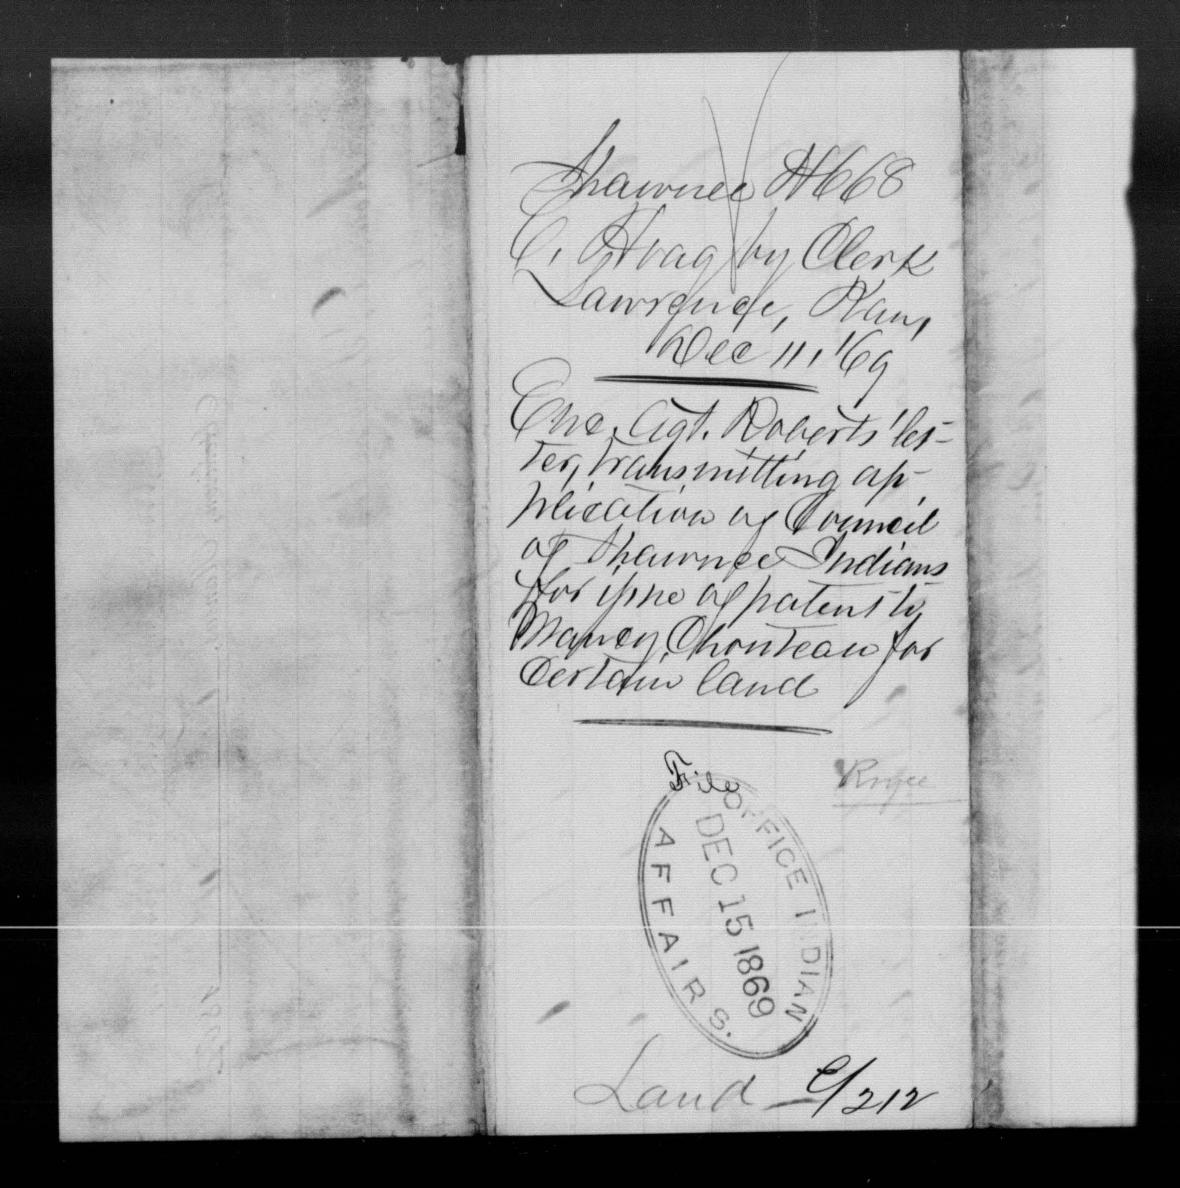 Shawnee H668
E. Hoag by Clerk
Lawrence, Kan,
Dec 11, '69
Enc. Agt. Roberts' let-
ter, transmitting ap-
plication of Council
of Shawnee Indians
for issue of patent to
Nancy Chouteau for
Certain land
File
Royce
OFFICE INDIAN AFFAIRS.
DEC 15 1869
Land
212